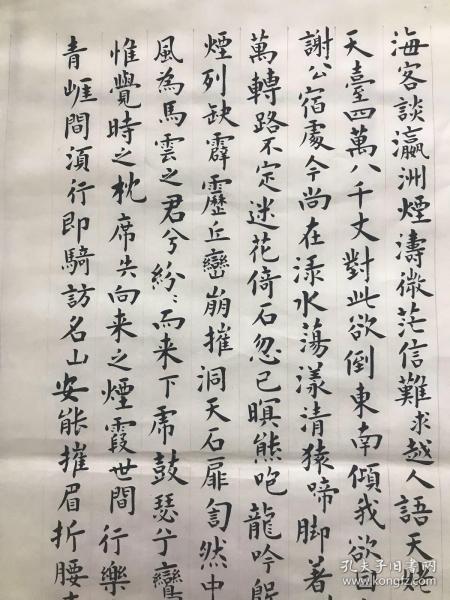 海客談瀛洲煙濤微茫信難求越人語天姥
天臺四萬八千丈對此欲倒東南傾我欲因
謝公宿處今尚在渌水蕩漾清猿啼脚著
萬轉路不定迷花倚石忽已暝熊咆龍吟殷
煙列缺霹靂丘巒崩摧洞天石扉訇然中
風為馬雲之君兮紛〻而来下虎鼓瑟兮鸞
惟覺時之枕席失向来之煙霞世間行樂
青崕間湏行即騎訪名山安能摧眉折腰
孔夫子旧书网